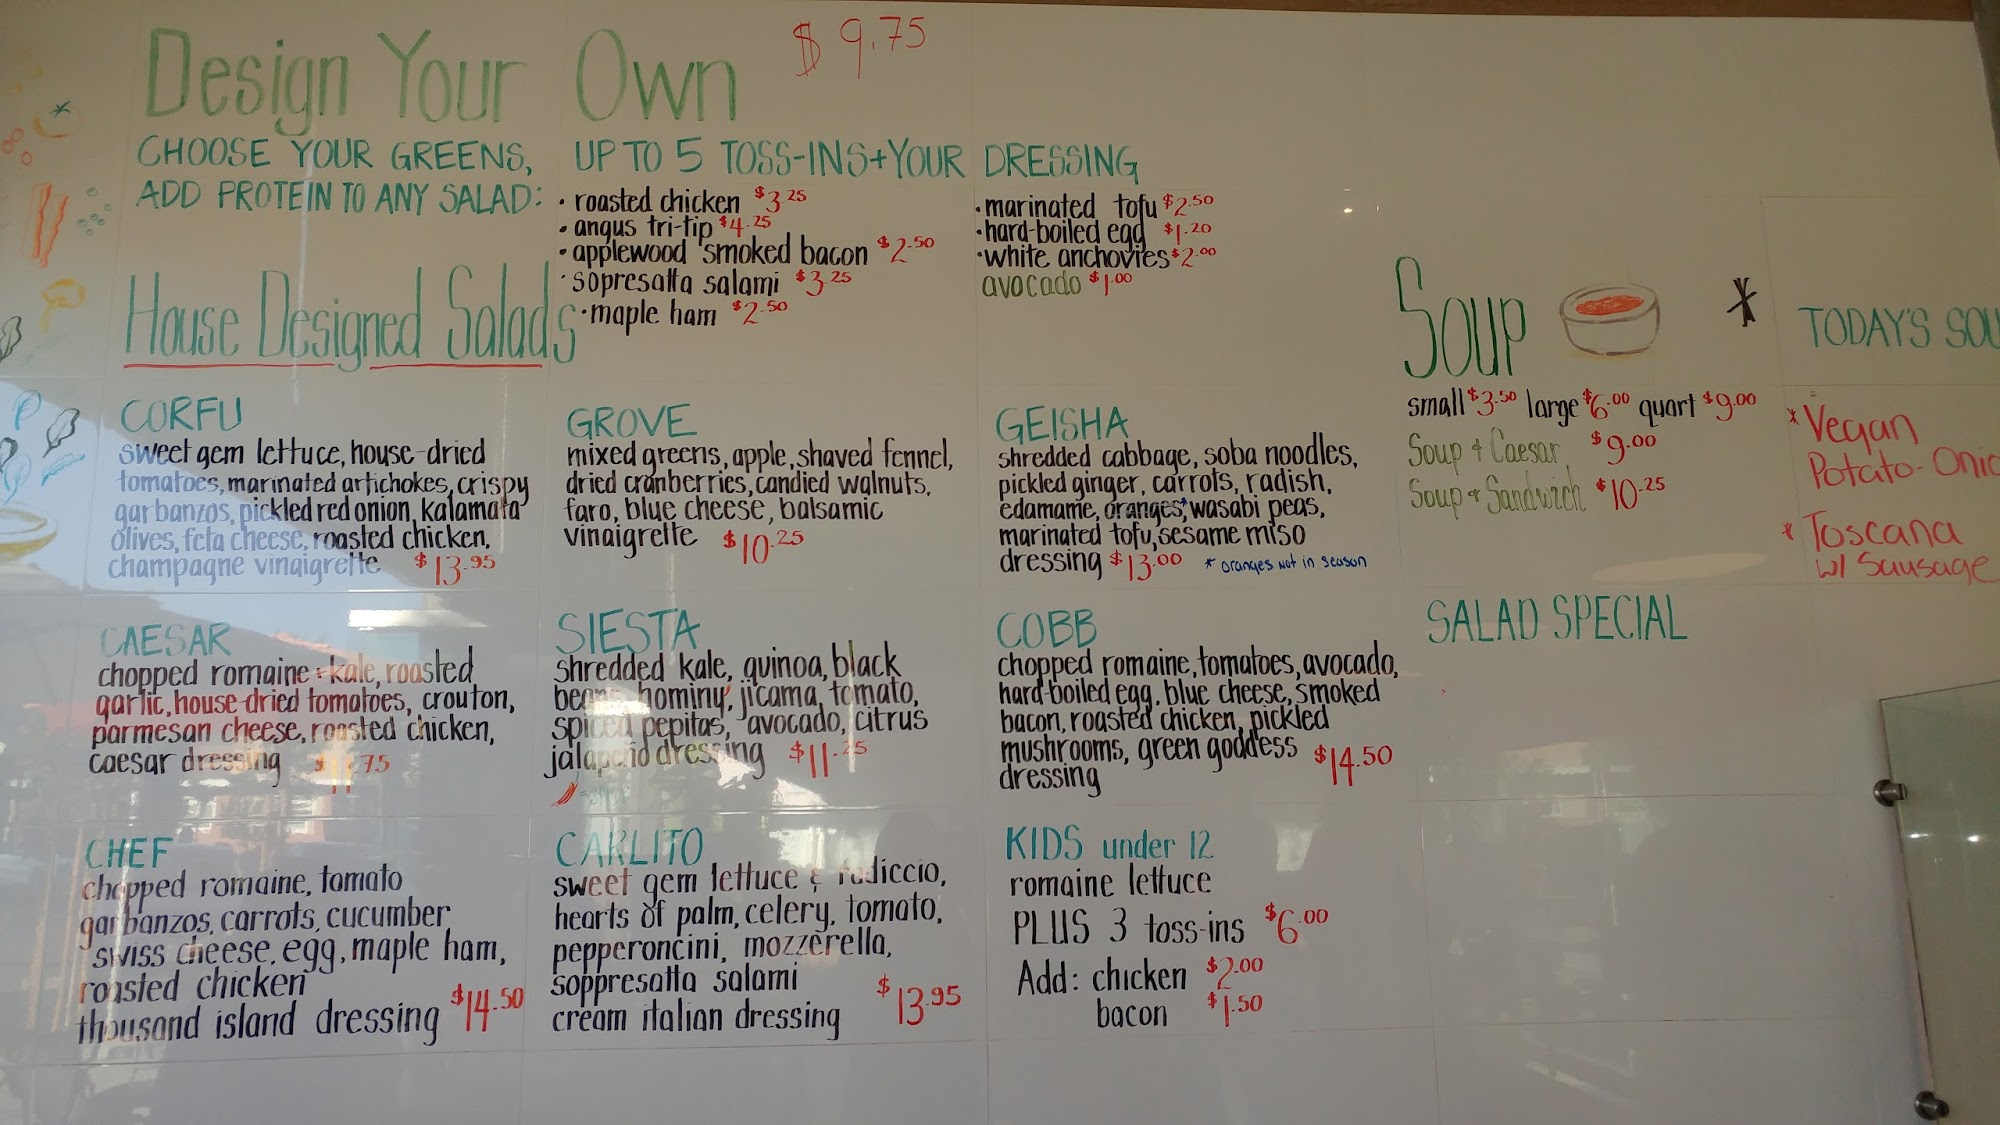 Design Your Own $9.75
CHOOSE YOUR GREENS, UP TO 5 TOSS-INS + YOUR DRESSING
ADD PROTEIN TO ANY SALAD:
• roasted chicken $3.25
• angus tri-tip $4.25
• applewood smoked bacon $2.50
• sopresatta salami $3.25
• maple ham $2.50
• marinated tofu $2.50
• hard-boiled egg $1.20
• white anchovies $2.00
avocado $1.00
House Designed Salads
CORFU
sweet gem lettuce, house-dried
tomatoes, marinated artichokes, crispy
garbanzos, pickled red onion, kalamata
olives, feta cheese, roasted chicken,
champagne vinaigrette $13.95
GROVE
mixed greens, apple, shaved fennel,
dried cranberries, candied walnuts,
faro, blue cheese, balsamic
vinaigrette $10.25
GEISHA
shredded cabbage, soba noodles,
pickled ginger, carrots, radish,
edamame, oranges,* wasabi peas,
marinated tofu, sesame miso
dressing $13.00 * oranges not in season
CAESAR
chopped romaine + kale, roasted
garlic, house-dried tomatoes, crouton,
parmesan cheese, roasted chicken,
caesar dressing
SIESTA
shredded kale, quinoa, black
beans, hominy, jicama, tomato,
spiced pepitas, avocado, citrus
jalapeño dressing $11.25
COBB
chopped romaine, tomatoes, avocado,
hard-boiled egg, blue cheese, smoked
bacon, roasted chicken, pickled
mushrooms, green goddess $14.50
dressing
CHEF
chopped romaine, tomato
garbanzos, carrots, cucumber
swiss cheese, egg, maple ham,
roasted chicken
thousand island dressing $14.50
CARLITO
sweet gem lettuce & radiccio,
hearts of palm, celery, tomato,
pepperoncini, mozzerella,
soppresatta salami
cream italian dressing $13.95
KIDS under 12
romaine lettuce
PLUS 3 toss-ins $6.00
Add: chicken $2.00
bacon $1.50
SOUP
small $3.50 large $6.00 quart $9.00
Soup + Caesar $9.00
Soup + Sandwich $10.25
SALAD SPECIAL
TODAY'S SOU
* Vegan
Potato-Onio
* Toscana
w/ Sausage